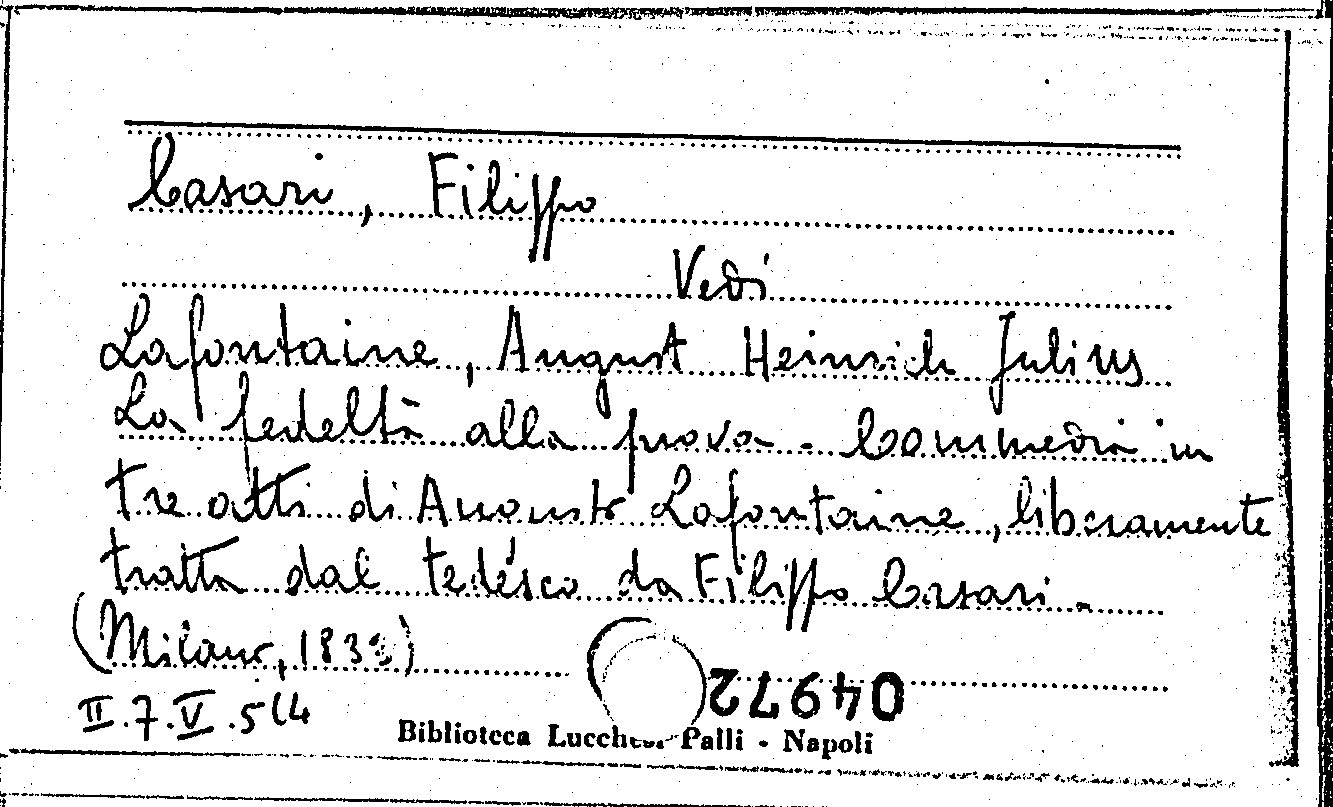 Casari, Filippo
Vedi
Lafontaine, August Heinrich Julius
La fedeltà alla prova - Commedia in
tre atti di Augusto Lafontaine, liberamente
tratta dal tedesco da Filippo Casari.
(Milano, 183
II.7.V.5(4
04972
Biblioteca Lucchesi Palli - Napoli